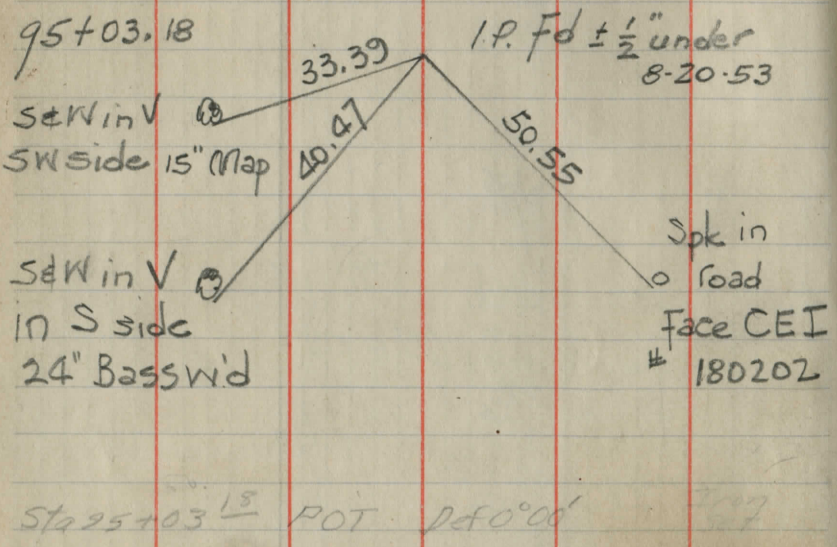 95+03.18
I.P. Fd ± ½" under
8-20-53
33.39
S&W in V
SW side 15" Map
40.47
50.55
S&W in V
in S side
24" Bassw'd
Spk in
road
Face CEI
# 180202
Sta 95+03 18 POT Def 0°00'